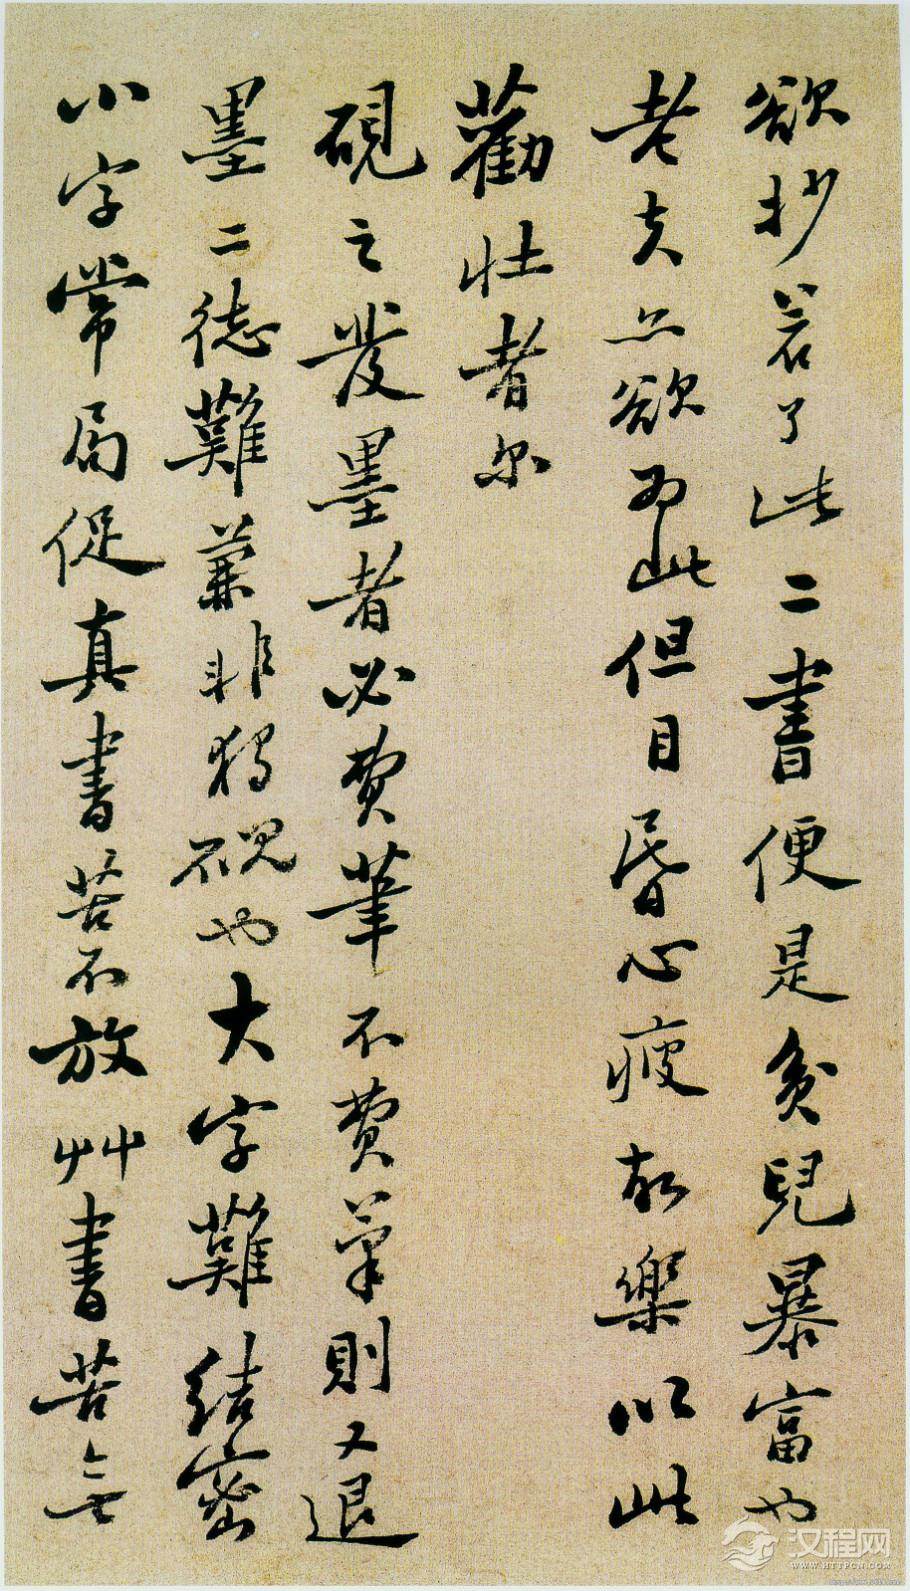 欲抄若了此二書便是貧兒暴富也
老夫亦欲為此但目昏心疲故樂以此
勸壯者尔
硯之發墨者必費筆不費筆則又退
墨二德難兼非獨硯也大字難結密
小字常局促真書苦不放艸書苦無
汉程网
WWW.HTTPCN.COM